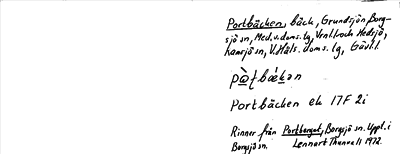 Portbäcken, bäck, Grundsjön, Borg-
sjö sn, Med. v. doms. lg,
Hansjö sn, V. Häls. doms. lg, Gävl. l.
Portbäcken ek 17F 2i
Rinner från Portberget, Borgsjö sn. Uppt. i
Borgsjö sn. Lennart Thunvall 1972.